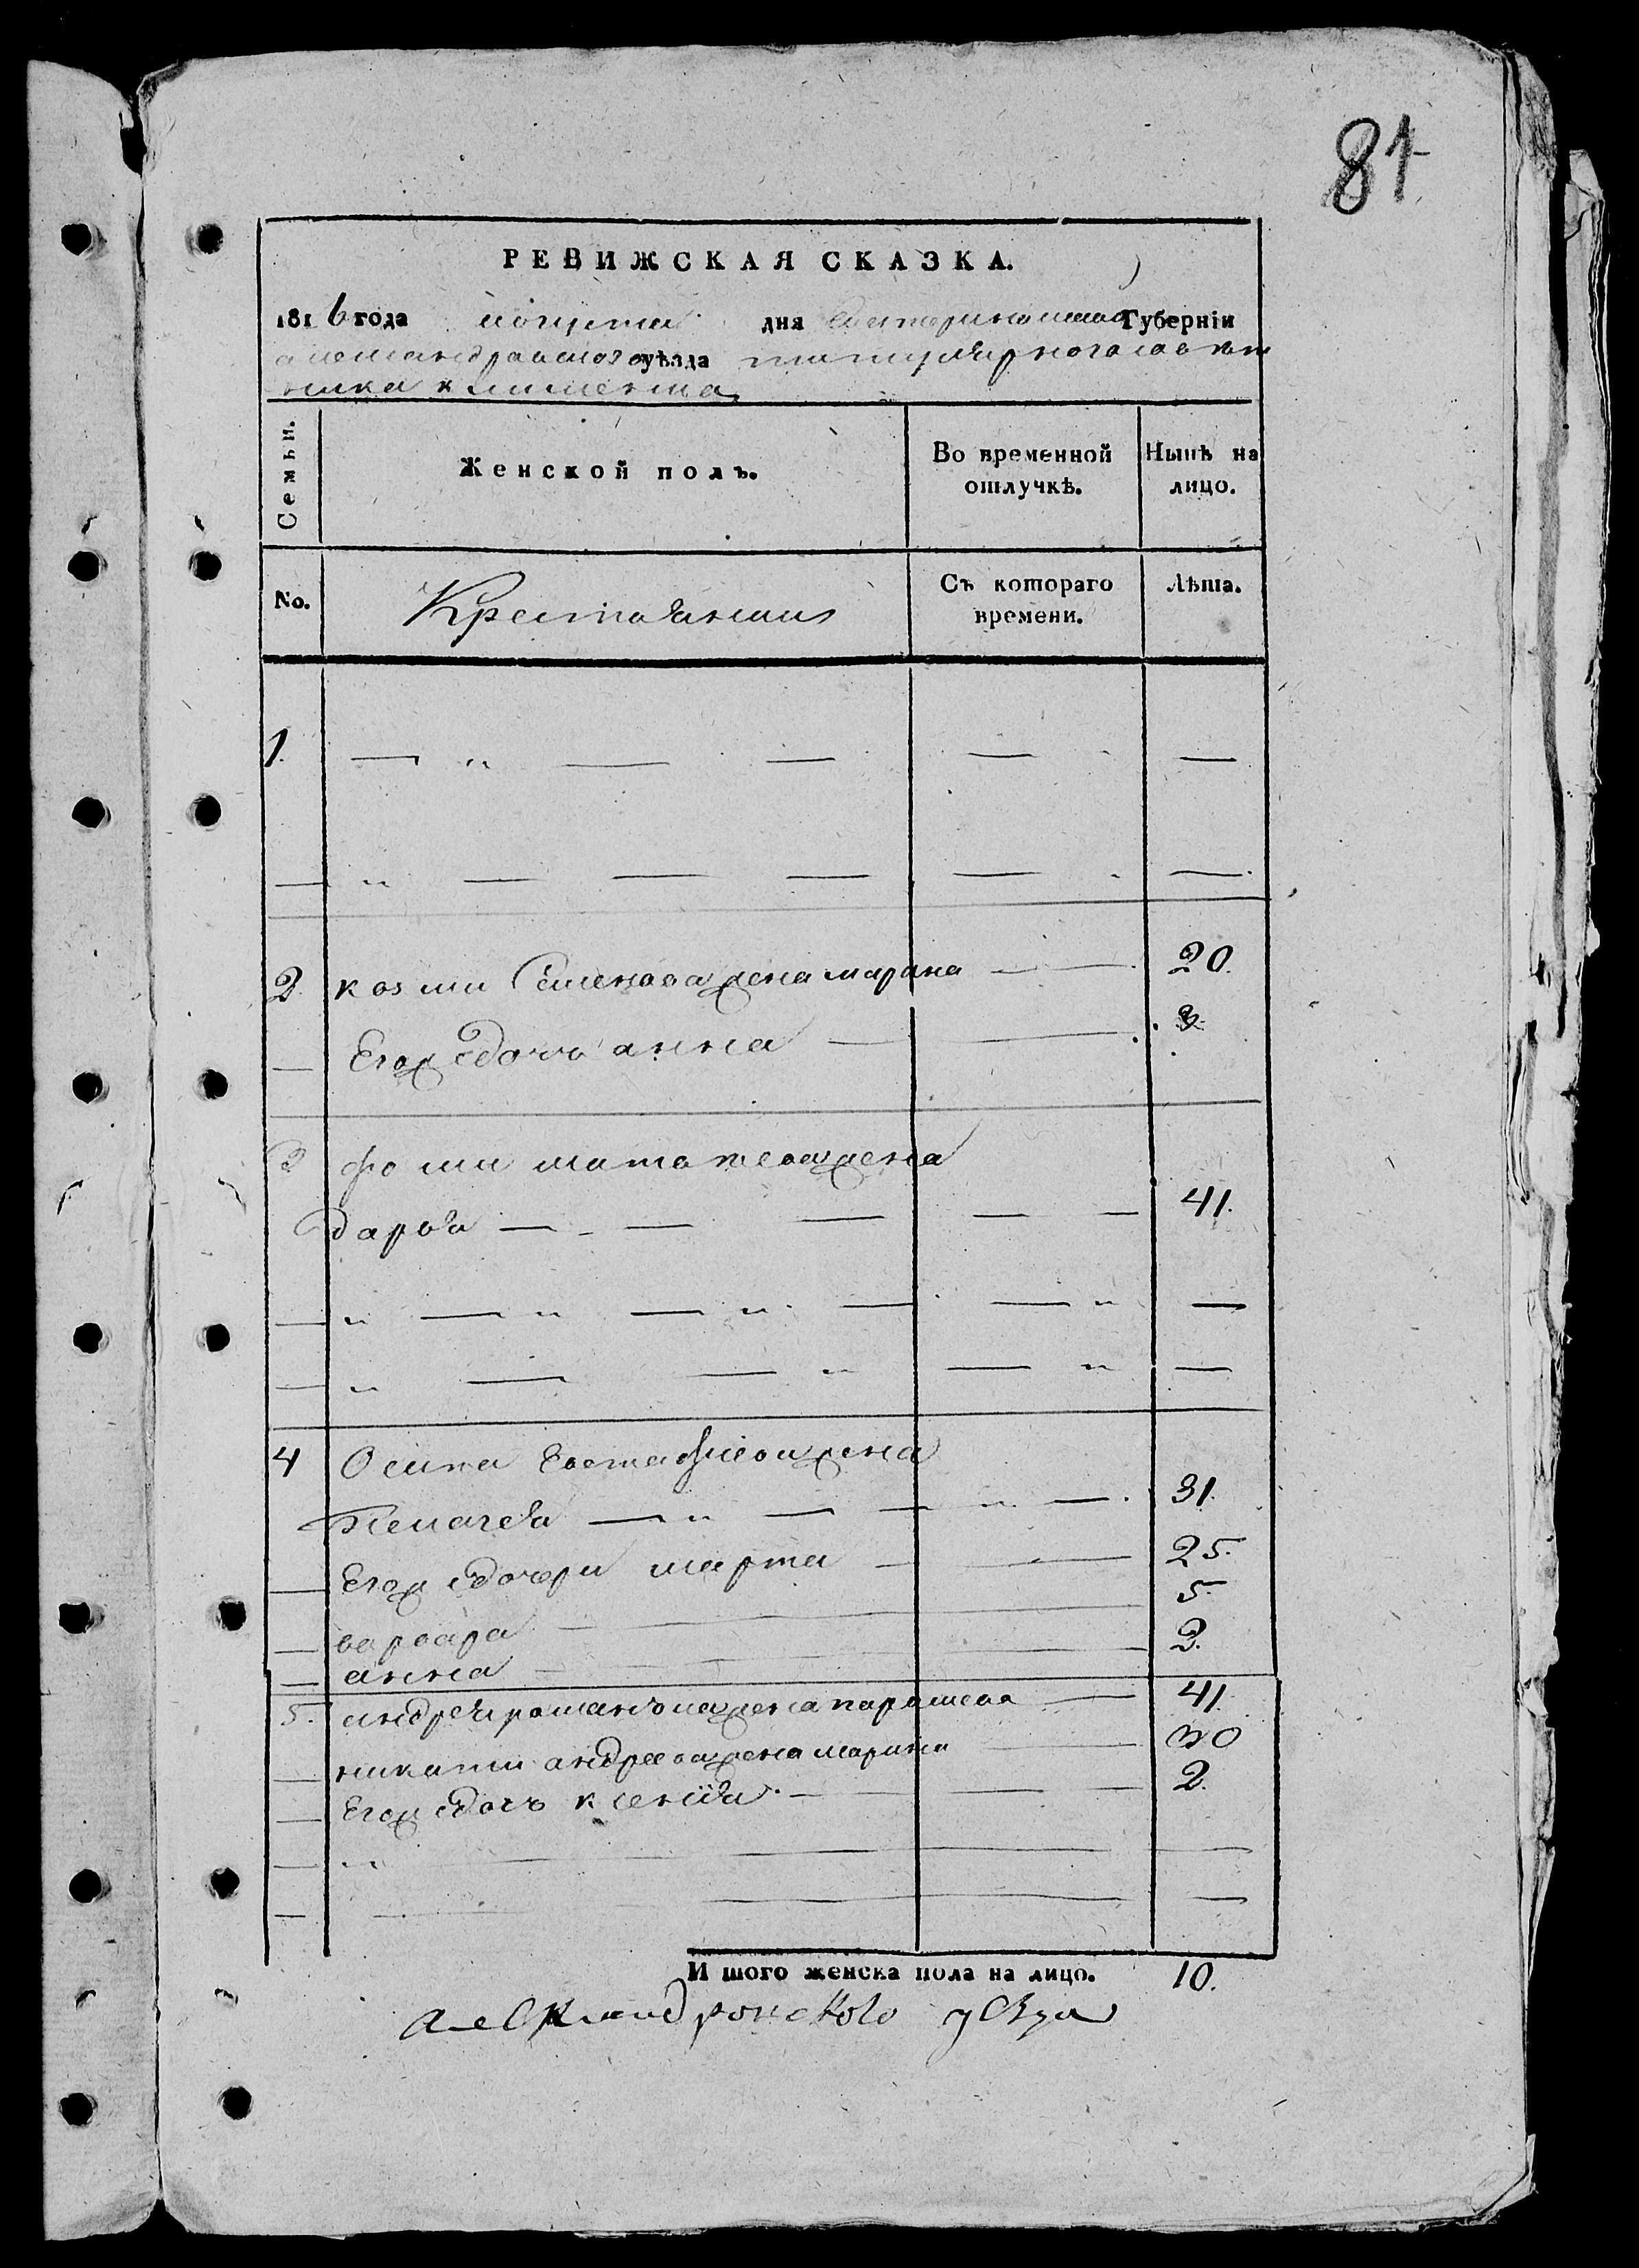 81
РЕВИЖСКАЯ СКАЗКА.
1816 года августа дня Екатеринославской Губерніи
александровского уѣзда титулярного совѣт
ника климента
Семьи.
Женской полъ.
Во временной
отлучкѣ.
Нынѣ на
лицо.
No.
Крестьянии
Съ котораго
времени.
Лѣта.
1.
2 козми Семенова жена марина 20.
Егож дочь анна 3
3 фоми матвѣева жена
дарья 41.
4 Осипа Евстафиева жена
Пелагея 31.
Егож дочери марта 25.
варвара 5.
анна 2.
5. андрея романова жена параскева 41.
никити андреева жена марина 20
Егож дочь ксенія 2.
Итого женска пола на лицо. 10.
Александровского уѣзда